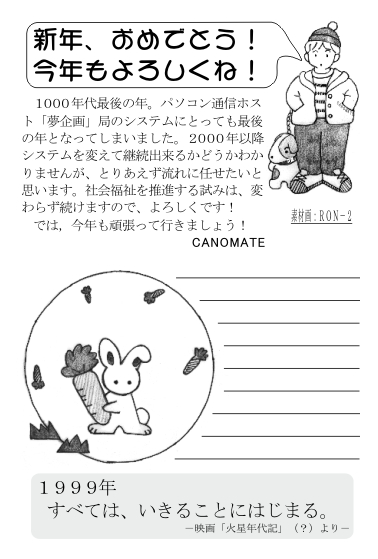 新年、おめでとう！
今年もよろしくね！
　１０００年代最後の年。パソコン通信ホス
ト「夢企画」局のシステムにとっても最後
の年となってしまいました。２０００年以降
システムを変えて継続出来るかどうかわか
りませんが、とりあえず流れに任せたいと
思います。社会福祉を推進する試みは、変
わらず続けますので、よろしくです！
　では，今年も頑張って行きましょう！
CANOMATE
素材画：ＲＯＮ－２
１９９９年
すべては、いきることにはじまる。
－映画「火星年代記」（？）より－